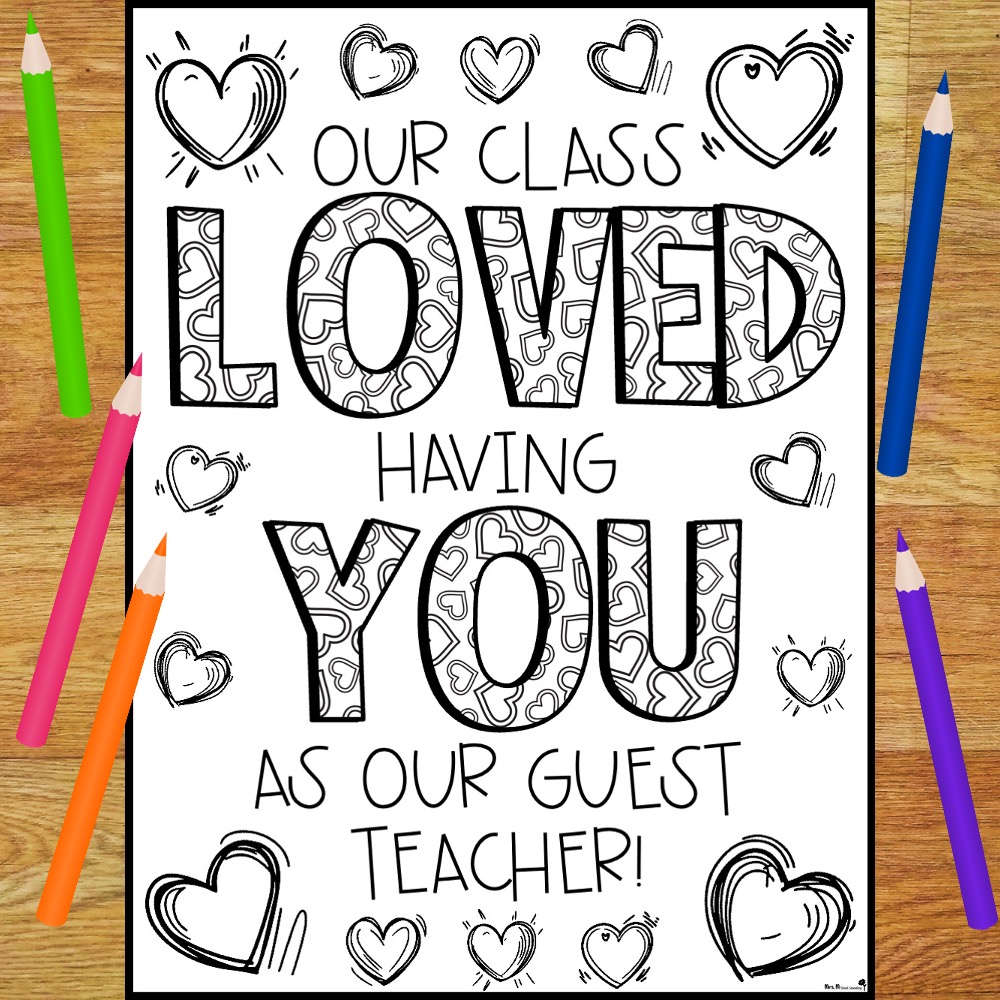 OUR CLASS
LOVED
HAVING
YOU
AS OUR GUEST
TEACHER!